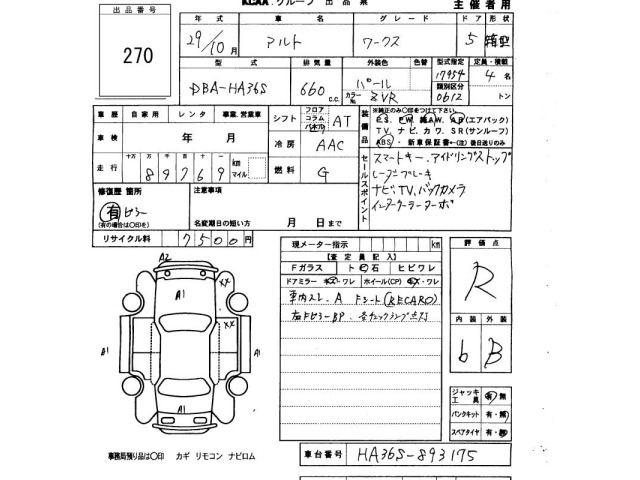 出品番号
270
KCAA.グループ 出品票 主催者用
年式 車名 グレード ドア 形状
29/10月 アルト ワークス 5 箱型
型式 排気量 外装色 色替 型式指定 定員・積載
DBA-HA36S 660 c.c. パール 17954 4名
カラーNo. ZVR 類別区分 0612 トン
車歴 自家用 レンタ 事業.営業車
シフト フロア コラム パネル AT
車検 年 月
冷房 AAC
走行 十万 万 千 百 十 一 89769 km マイル
燃料 G
装備品
※純正のみ○印をつけて下さい。
P.S. P.W. 純A.W. A.B(エアバック)
T.V. ナビ. カワ. S.R(サンルーフ)
ABS. 新車保証書←(注)後日送りのみ
セールスポイント
スマートキー、アイドリングストップ
レーダーブレーキ
ナビ、TV、バックカメラ
インタークーラーターボ
修復歴 箇所
有 ピラー
(有の場合は○印を)
注意事項
名変期日の短い方 月 日まで
リサイクル料 7500円
現メーター指示 km
【査定員記入】
Fガラス ト 石 ヒビワレ
ドアミラー キズ・ワレ ホイール(CP) キズ・ワレ
車内スレ、A Fシート(RECARO)
右Fピラー BP、各チェックランプ点灯
評価点
R
内装 外装
b B
A2
A1
XX
XX
A1
A1
A1
ジャッキ工具 有・無
パンクキット 有・無
スペアタイヤ 有・無
事務局預り品は○印 カギ リモコン ナビロム
車台番号 HA36S-893175